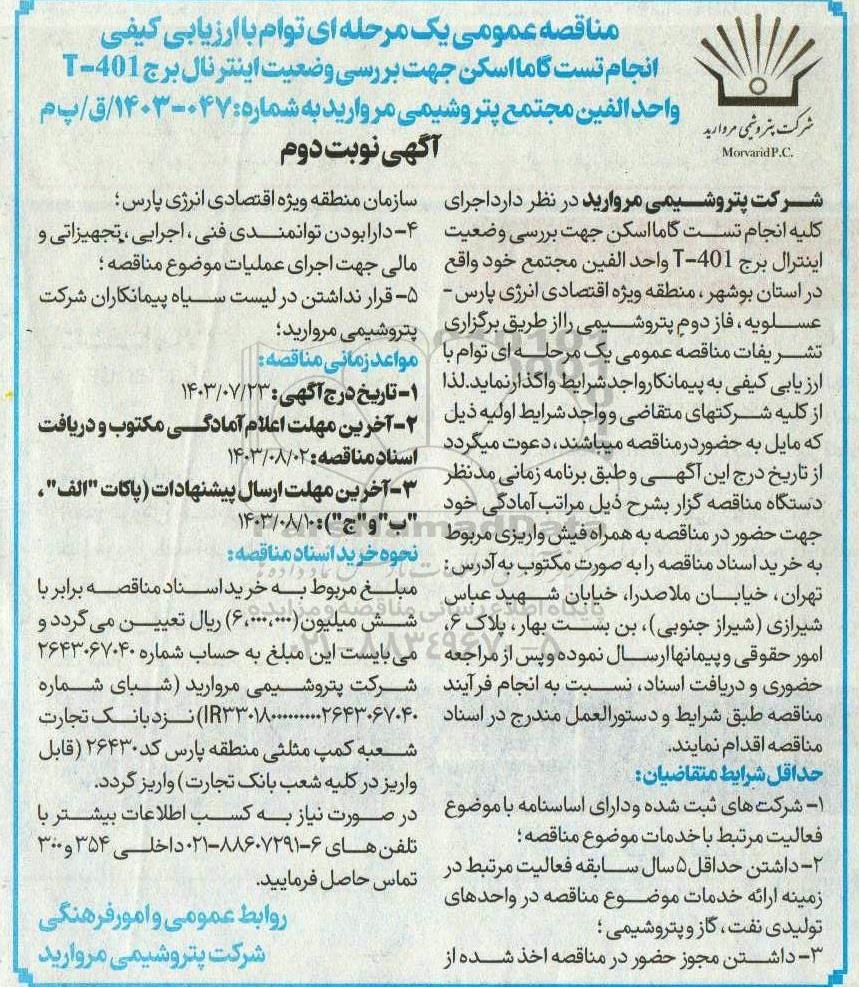 مناقصه عمومی یک مرحله ای توام با ارزیابی کیفی
انجام تست گاما اسکن جهت بررسی وضعیت اینترنال برج T-401
واحد الفین مجتمع پتروشیمی مروارید به شماره: ۰۴۷-۱۴۰۳/ق/پ م
آگهی نوبت دوم
شرکت پتروشیمی مروارید
Morvarid P.C.
شرکت پتروشیمی مروارید در نظر دارد اجرای
کلیه انجام تست گاما اسکن جهت بررسی وضعیت
اینترال برج T-401 واحد الفین مجتمع خود واقع
در استان بوشهر، منطقه ویژه اقتصادی انرژی پارس -
عسلویه، فاز دوم پتروشیمی را از طریق برگزاری
تشریفات مناقصه عمومی یک مرحله ای توام با
ارزیابی کیفی به پیمانکار واجد شرایط واگذار نماید. لذا
از کلیه شرکتهای متقاضی و واجد شرایط اولیه ذیل
که مایل به حضور در مناقصه میباشند، دعوت میگردد
از تاریخ درج این آگهی و طبق برنامه زمانی مدنظر
دستگاه مناقصه گزار بشرح ذیل مراتب آمادگی خود
جهت حضور در مناقصه به همراه فیش واریزی مربوط
به خرید اسناد مناقصه را به صورت مکتوب به آدرس:
تهران، خیابان ملاصدرا، خیابان شهید عباس
شیرازی (شیراز جنوبی)، بن بست بهار، پلاک ۶،
امور حقوقی و پیمانها ارسال نموده و پس از مراجعه
حضوری و دریافت اسناد، نسبت به انجام فرآیند
مناقصه طبق شرایط و دستورالعمل مندرج در اسناد
مناقصه اقدام نمایند.
حداقل شرایط متقاضیان:
۱- شرکت های ثبت شده و دارای اساسنامه با موضوع
فعالیت مرتبط با خدمات موضوع مناقصه؛
۲- داشتن حداقل ۵ سال سابقه فعالیت مرتبط در
زمینه ارائه خدمات موضوع مناقصه در واحدهای
تولیدی نفت، گاز و پتروشیمی؛
۳- داشتن مجوز حضور در مناقصه اخذ شده از
سازمان منطقه ویژه اقتصادی انرژی پارس؛
۴- دارا بودن توانمندی فنی، اجرایی، تجهیزاتی و
مالی جهت اجرای عملیات موضوع مناقصه؛
۵- قرار نداشتن در لیست سیاه پیمانکاران شرکت
پتروشیمی مروارید؛
مواعد زمانی مناقصه:
۱- تاریخ درج آگهی: ۱۴۰۳/۰۷/۲۳
۲- آخرین مهلت اعلام آمادگی مکتوب و دریافت
اسناد مناقصه: ۱۴۰۳/۰۸/۰۲
۳- آخرین مهلت ارسال پیشنهادات (پاکات "الف"،
"ب" و "ج"): ۱۴۰۳/۰۸/۱۰
نحوه خرید اسناد مناقصه:
مبلغ مربوط به خرید اسناد مناقصه برابر با
شش میلیون (۶,۰۰۰,۰۰۰) ریال تعیین می گردد و
می بایست این مبلغ به حساب شماره ۲۶۴۳۰۶۷۰۴۰
شرکت پتروشیمی مروارید (شبای شماره
IR۳۳۰۱۸۰۰۰۰۰۰۰۰۰۰۲۶۴۳۰۶۷۰۴۰) نزد بانک تجارت
شعبه کمپ مثلثی منطقه پارس کد ۲۶۴۳۰ (قابل
واریز در کلیه شعب بانک تجارت) واریز گردد.
در صورت نیاز به کسب اطلاعات بیشتر با
تلفن های ۶-۸۸۶۰۷۲۹۱-۰۲۱ داخلی ۳۵۴ و ۳۰۰
تماس حاصل فرمایید.
روابط عمومی و امور فرهنگی
شرکت پتروشیمی مروارید
ParsNamadData
پایگاه اطلاع رسانی مناقصه و مزایده
۰۲۱-۸۸۳۴۹۶۷۰-۵